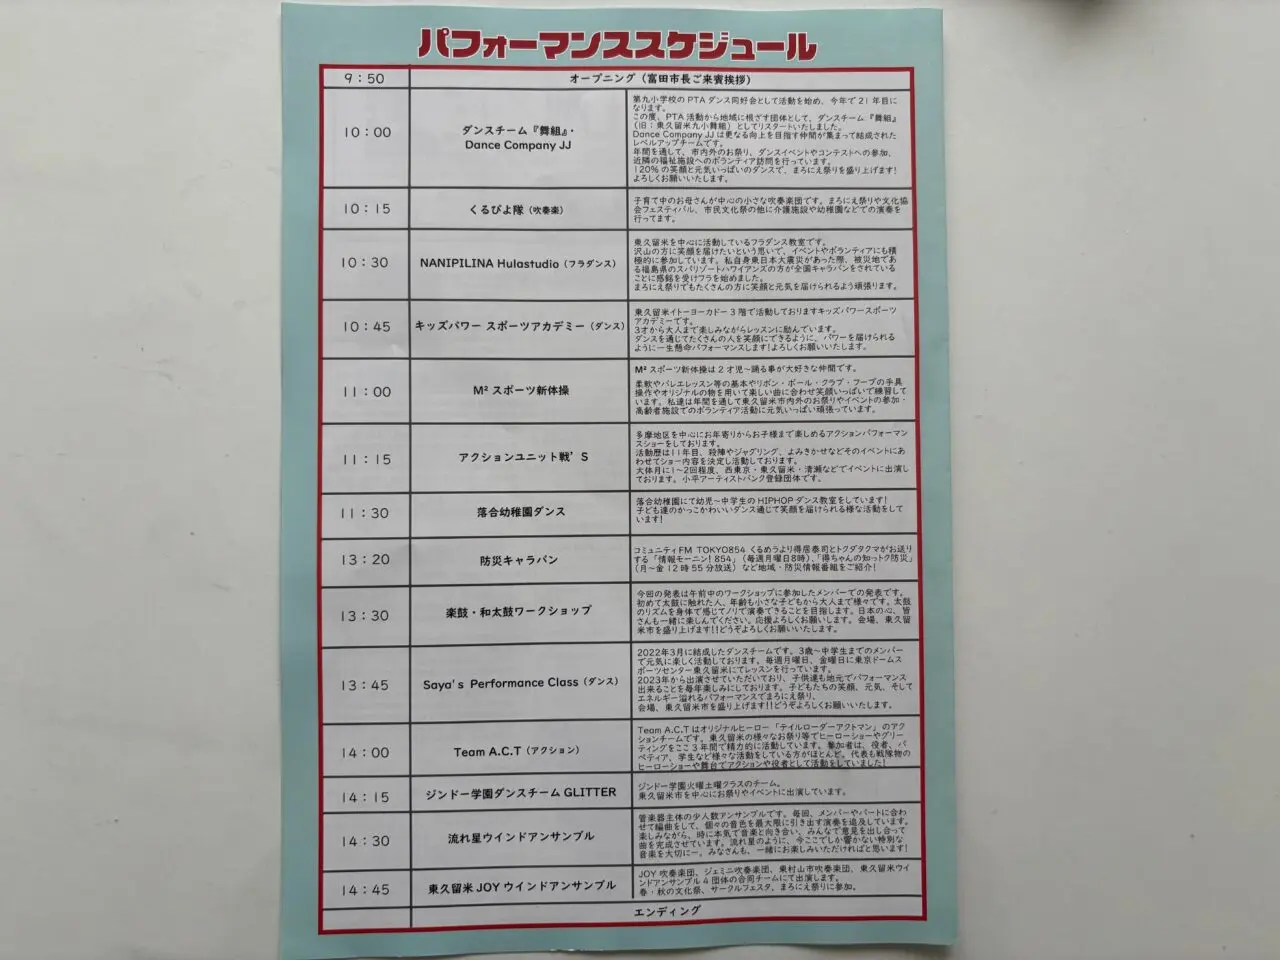 パフォーマンススケジュール
9：50
オープニング（富田市長ご来賓挨拶）
10：00
ダンスチーム『舞組』・
Dance Company JJ
第九小学校のPTAダンス同好会として活動を始め、今年で21年目に
なります。
この度、PTA活動から地域に根ざす団体として、ダンスチーム『舞組』
（旧：東久留米九小舞組）としてリスタートいたしました。
Dance Company JJは更なる向上を目指す仲間が集まって結成された
レベルアップチームです。
年間を通して、市内外のお祭り、ダンスイベントやコンテストへの参加、
近隣の福祉施設へのボランティア訪問を行っています。
120%の笑顔と元気いっぱいのダンスで、まろにえ祭りを盛り上げます!
よろしくお願いいたします。
10：15
くるぴよ隊（吹奏楽）
子育て中のお母さんが中心の小さな吹奏楽団です。まろにえ祭りや文化協
会フェスティバル、市民文化祭の他に介護施設や幼稚園などでの演奏を
行ってます。
10：30
NANIPILINA Hulastudio（フラダンス）
東久留米を中心に活動しているフラダンス教室です。
沢山の方に笑顔を届けたいという思いで、イベントやボランティアにも積
極的に参加しています。私自身東日本大震災があった際、被災地であ
る福島県のスパリゾートハワイアンズの方が全国キャラバンをされている
ことに感銘を受けフラを始めました。
まろにえ祭りでもたくさんの方に笑顔と元気を届けられるよう頑張ります。
10：45
キッズパワー スポーツアカデミー（ダンス）
東久留米イトーヨーカドー3階で活動しておりますキッズパワースポーツ
アカデミーです。
3才から大人まで楽しみながらレッスンに励んでいます。
ダンスを通じてたくさんの人を笑顔にできるように、パワーを届けられる
ように一生懸命パフォーマンスします!よろしくお願いいたします。
11：00
M² スポーツ新体操
M² スポーツ新体操は2才児～踊る事が大好きな仲間です。
柔軟やバレエレッスン等の基本やリボン・ボール・クラブ・フープの手具
操作やオリジナルの物を用いて楽しい曲に合わせ笑顔いっぱいで練習して
います。私達は年間を通して東久留米市内外のお祭りやイベントの参加・
高齢者施設でのボランティア活動に元気いっぱい頑張っています。
11：15
アクションユニット戦’S
多摩地区を中心にお年寄りからお子様まで楽しめるアクションパフォーマン
スショーをしております。
活動歴は11年目、殺陣やジャグリング、よみきかせなどそのイベントにあ
わせてショー内容を決定し活動しております。
大体月に1～2回程度、西東京・東久留米・清瀬などでイベントに出演し
ております。小平アーティストバンク登録団体です。
11：30
落合幼稚園ダンス
落合幼稚園にて幼児～中学生のHIPHOPダンス教室をしています!
子ども達のかっこかわいいダンス通じて笑顔を届けられる様な活動をして
います!
13：20
防災キャラバン
コミュニティFM TOKYO854 くるめうより得居泰司とトクダタクマがお送り
する「情報モーニン!854」（毎週月曜日8時）、「得ちゃんの知っトク防災」
（月～金12時55分放送）など地域・防災情報番組をご紹介!
13：30
楽鼓・和太鼓ワークショップ
今回の発表は午前中のワークショップに参加したメンバーでの発表です。
初めて太鼓に触れた人、年齢も小さな子どもから大人まで様々です。太鼓
のリズムを身体で感じてノリで演奏できることを目指します。日本の心、皆
さんも一緒に楽しんでください。応援よろしくお願いします。会場、東久留
米市を盛り上げます!!どうぞよろしくお願いいたします。
13：45
Saya's Performance Class（ダンス）
2022年3月に結成したダンスチームです。3歳～中学生までのメンバー
で元気に楽しく活動しております。毎週月曜日、金曜日に東京ドームス
ポーツセンター東久留米にてレッスンを行っています。
2023年から出演させていただいており、子供達も地元でパフォーマンス
出来ることを毎年楽しみにしております。子どもたちの笑顔、元気、そして
エネルギー溢れるパフォーマンスでまろにえ祭り、
会場、東久留米市を盛り上げます!!どうぞよろしくお願いいたします。
14：00
Team A.C.T（アクション）
Team A.C.Tはオリジナルヒーロー「テイルローダーアクトマン」のアク
ションチームです。東久留米の様々なお祭り等でヒーローショーやグリー
ティングをここ3年間で精力的に活動しています。参加者は、役者、パ
ペティア、学生など様々な活動をしている方がほとんど。代表も戦隊物の
ヒーローショーや舞台でアクションや役者として活動をしていました!
14：15
ジンドー学園ダンスチームGLITTER
ジンドー学園火曜土曜クラスのチーム。
東久留米市を中心にお祭りやイベントに出演しています。
14：30
流れ星ウインドアンサンブル
管楽器主体の少人数アンサンブルです。毎回、メンバーやパートに合わ
せて編曲をして、個々の音色を最大限に引き出す演奏を追及しています。
楽しみながら、時に本気で音楽と向き合い、みんなで意見を出し合って
曲を完成させています。流れ星のように、今ここでしか響かない特別な
音楽を大切に―。みなさんも、一緒にお楽しみいただければと思います!
14：45
東久留米JOYウインドアンサンブル
JOY吹奏楽団、ジェミニ吹奏楽団、東村山市吹奏楽団、東久留米ウイ
ンドアンサンブル4団体の合同チームにて出演します。
春・秋の文化祭、サークルフェスタ、まろにえ祭りに参加。
エンディング